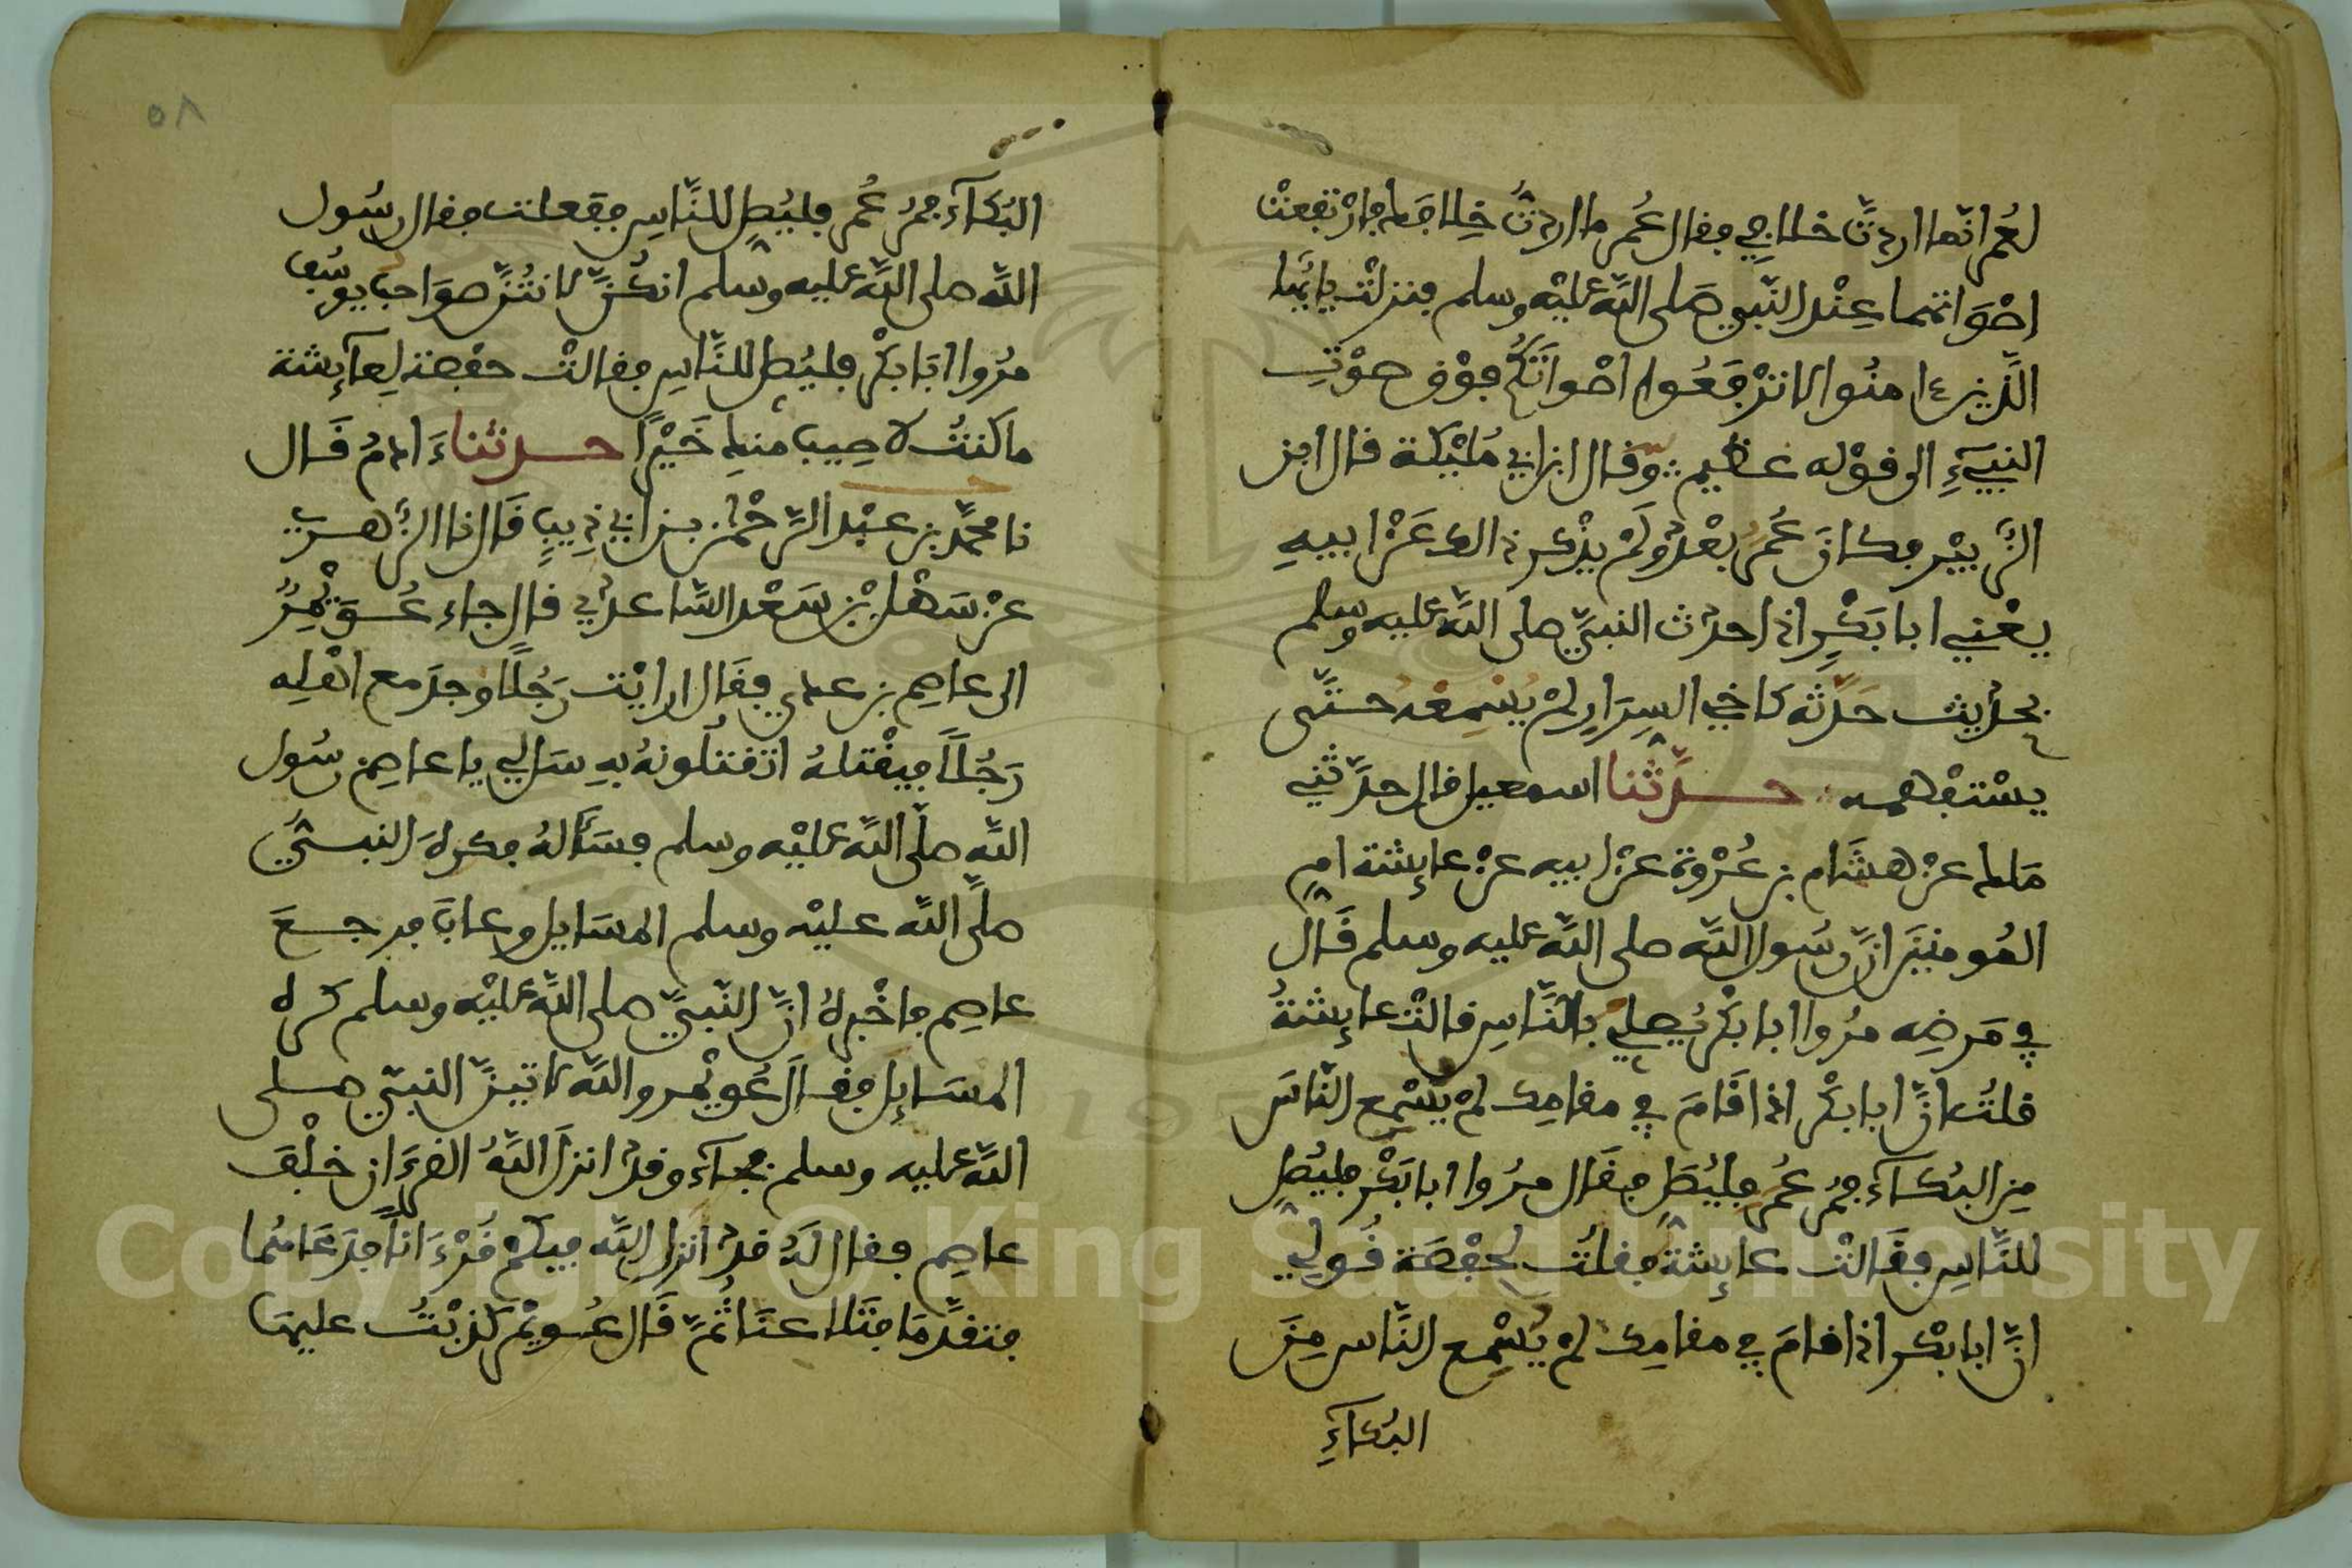 لعمر انما اردت خلافي فقال عمر ما اردت خلافك فارتفعت
اصواتهما عند النبي صلى الله عليه وسلم فنزلت يايها
الذين ءامنوا لا ترفعوا اصواتكم فوق صوت
النبيء الى قوله عظيم وقال ابن ابي مليكة قال ابن
الزبير فكان عمر بعد ولم يذكر ذالك عن ابيه
يعني ابا بكر اذا حدث النبي صلى الله عليه وسلم
بحديث حدثه كاخي السرار لم يسمعه حتى
يستفهمه حدثنا اسمعيل قال حدثني
ملك عن هشام بن عروة عن ابيه عن عايشة ام
المومنين ان رسول الله صلى الله عليه وسلم قال
في مرضه مروا ابا بكر يصلي بالناس قالت عايشة
قلت ان ابا بكر اذا قام في مقامك لم يسمع الناس
من البكاء فمر عمر فليصل فقال مروا ابا بكر فليصل
للناس فقالت عايشة فقلت لحفصة قولي
ان ابا بكر اذا قام في مقامك لم يسمع الناس من
البكاء
٥٨
البكاء فمر عمر فليصل للناس ففعلت فقال رسول
الله صلى الله عليه وسلم انكن لانتن صواحب يوسف
مروا ابا بكر فليصل للناس فقالت حفصة لعايشة
ما كنت لاصيب منك خيرا حدثنا ءادم قال
نا محمد بن عبد الرحمن بن ابي ذيب قال نا الزهري
عن سهل بن سعد الساعدي قال جاء عويمر
الى عاصم بن عدي فقال ارايت رجلا وجد مع اهله
رجلا فيقتله اتقتلونه به سل لي يا عاصم رسول
الله صلى الله عليه وسلم فسأله فكره النبي
صلى الله عليه وسلم المسايل وعاب فرجع
عاصم فاخبره ان النبي صلى الله عليه وسلم كره
المسايل فقال عويمر والله لاتين النبي صلى
الله عليه وسلم فجاء وقد انزل الله القرءان خلف
عاصم فقال له قد انزل الله فيكم قرءانا فدعا بهما
فتقدما فتلاعنا ثم قال عويمر كذبت عليها
Copyright © King Saud University
195